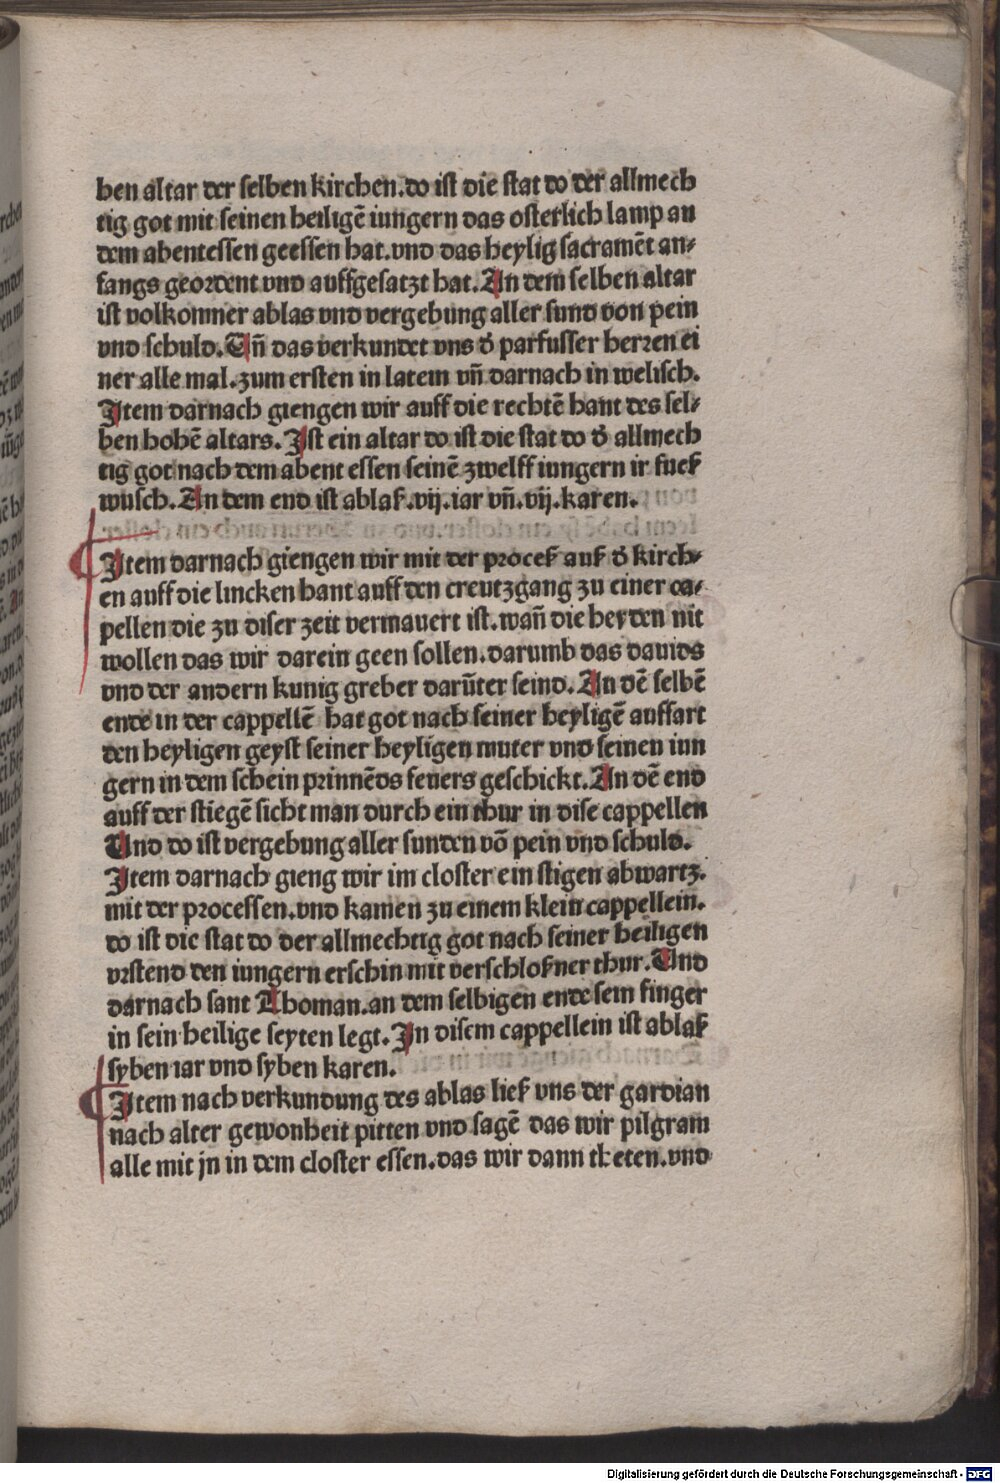 ben altar der selben kirchen.do ist die stat do der allmech
tig got mit seinen heiligē iungern das osterlich lamp an
dem abentessen geessen hat.vnd das heylig sacramēt an-
fangs geordent vnd auffgesatzt hat.An dem selben altar
ist volkomner ablas vnd vergebung aller sund von pein
vnd schuld.Vn̄ das verkundet vns d̕ parfusser herren ei
ner alle mal.zum ersten in latein vn̄ darnach in welisch.
Item darnach giengen wir auff die rechtē hant des sel-
ben hohē altars.Ist ein altar do ist die stat do d̕ allmech
tig got nach dem abent essen seinē zwelff iungern ir fueß
wusch.An dem end ist ablaß.vij.iar vn̄.vij.karen.
Item darnach giengen wir mit der proceß auß d̕ kirch-
en auff die lincken hant auff den creutzgang zu einer ca-
pellen die zu diser zeit vermauert ist.wan̄ die heyden nit
wollen das wir darein geen sollen.darumb das dauids
vnd der andern kunig greber darūter seind.An dē selbē
ende in der cappellē hat got nach seiner heyligē auffart
den heyligen geyst seiner heyligen muter vnd seinen iun
gern in dem schein prinnēds feuers geschickt.An dē end
auff der stiegē sicht man durch ein thur in dise cappellen
Vnd do ist vergebung aller sunden vō pein vnd schuld.
Item darnach gieng wir im closter ein stigen abwartz.
mit der processen.vnd kamen zu einem klein cappellein.
do ist die stat do der allmechtig got nach seiner heiligen
vrstend den iungern erschin mit verschloßner thur.Vnd
darnach sant Thoman.an dem selbigen ende sein finger
in sein heilige seyten legt.In disem cappellein ist ablaß
syben iar vnd syben karen.
Item nach verkundung des ablas ließ vns der gardian
nach alter gewonheit pitten vnd sagē das wir pilgram
alle mit jn in dem closter essen.das wir dann theten.vnd
Digitalisierung gefördert durch die Deutsche Forschungsgemeinschaft - DFG